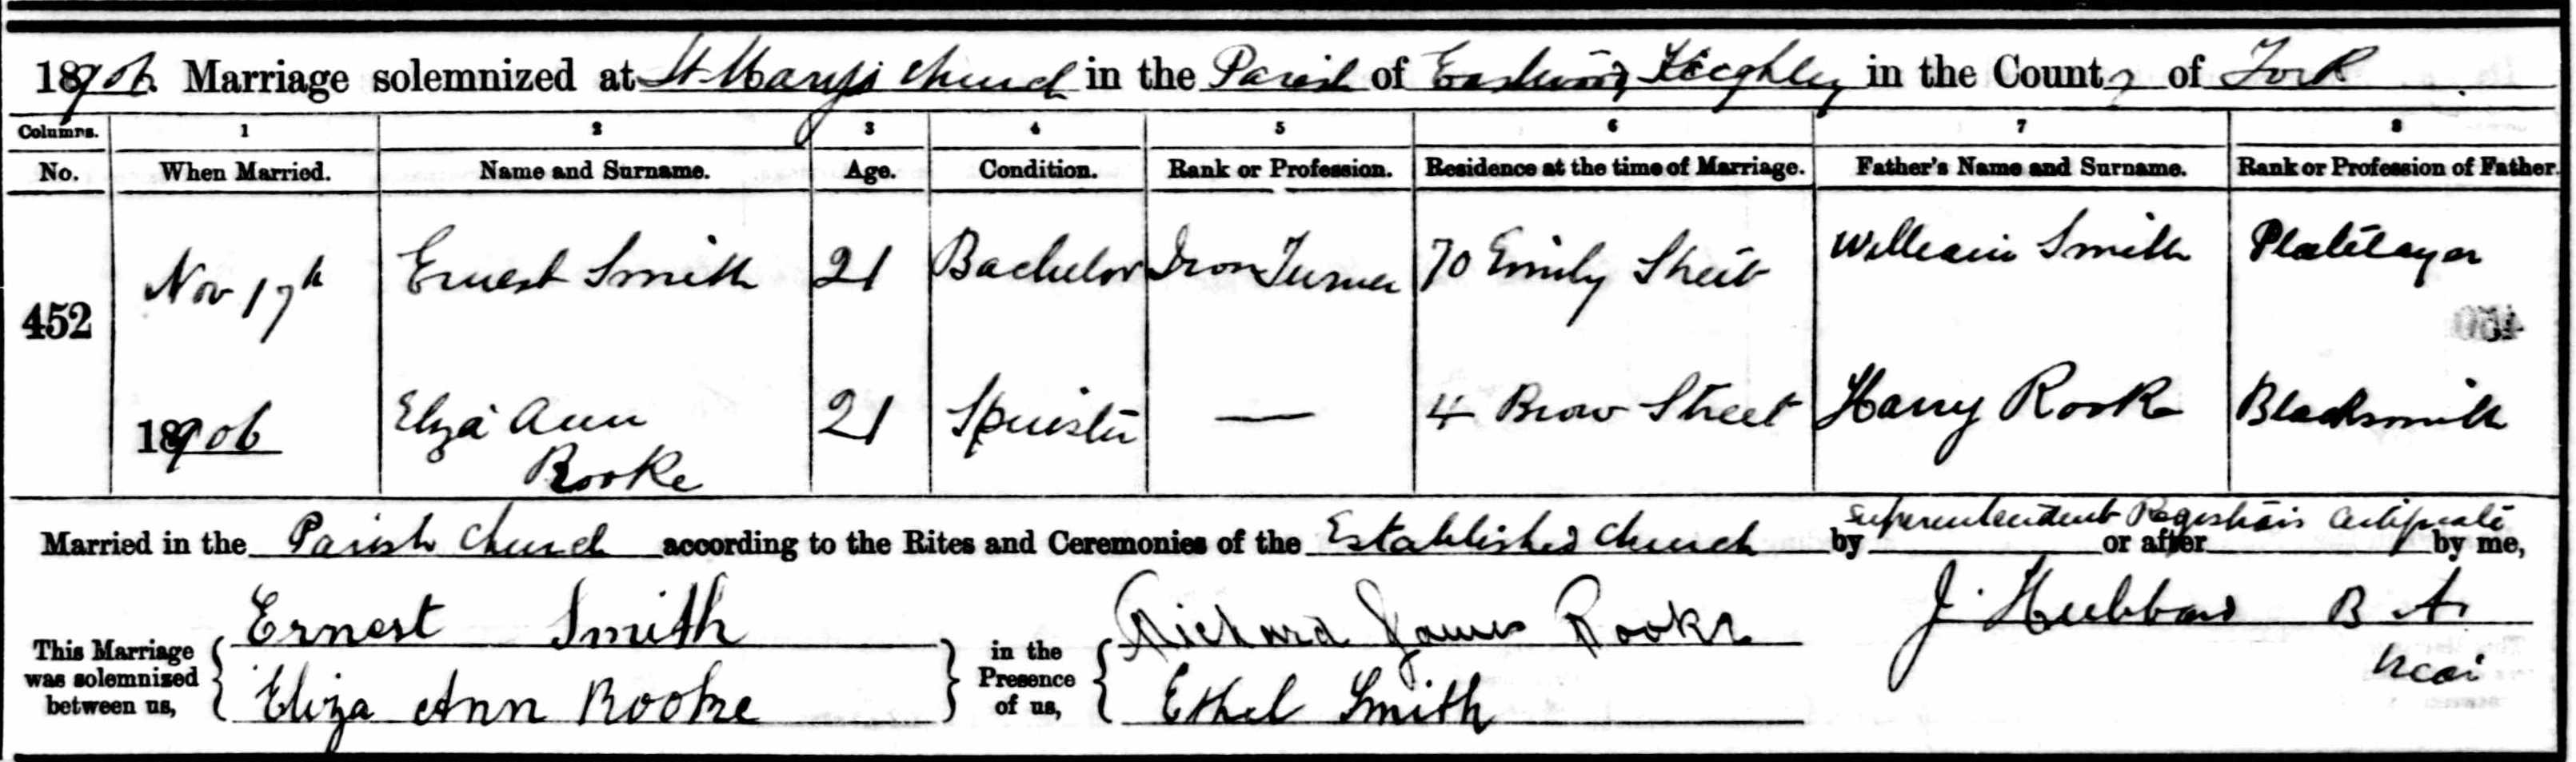 1906. Marriage solemnized at St Mary's Church in the Parish of Eastwood Keighley in the County of York
Columns. 1 2 3 4 5 6 7 8
No. When Married. Name and Surname. Age. Condition. Rank or Profession. Residence at the time of Marriage. Father's Name and Surname. Rank or Profession of Father.
452 Nov 17th Ernest Smith 21 Bachelor Iron Turner 70 Emily Street William Smith Platelayer
450
1906 Eliza Ann Rooke 21 Spinster — 4 Brow Street Harry Rooke Blacksmith
Married in the Parish Church according to the Rites and Ceremonies of the Established Church by Superintendent Registrars Certificate or after by me,
Ernest Smith Richard James Rooke J. Hubbard B A.
This Marriage was solemnized between us, in the Presence of us,
Eliza Ann Rooke Ethel Smith